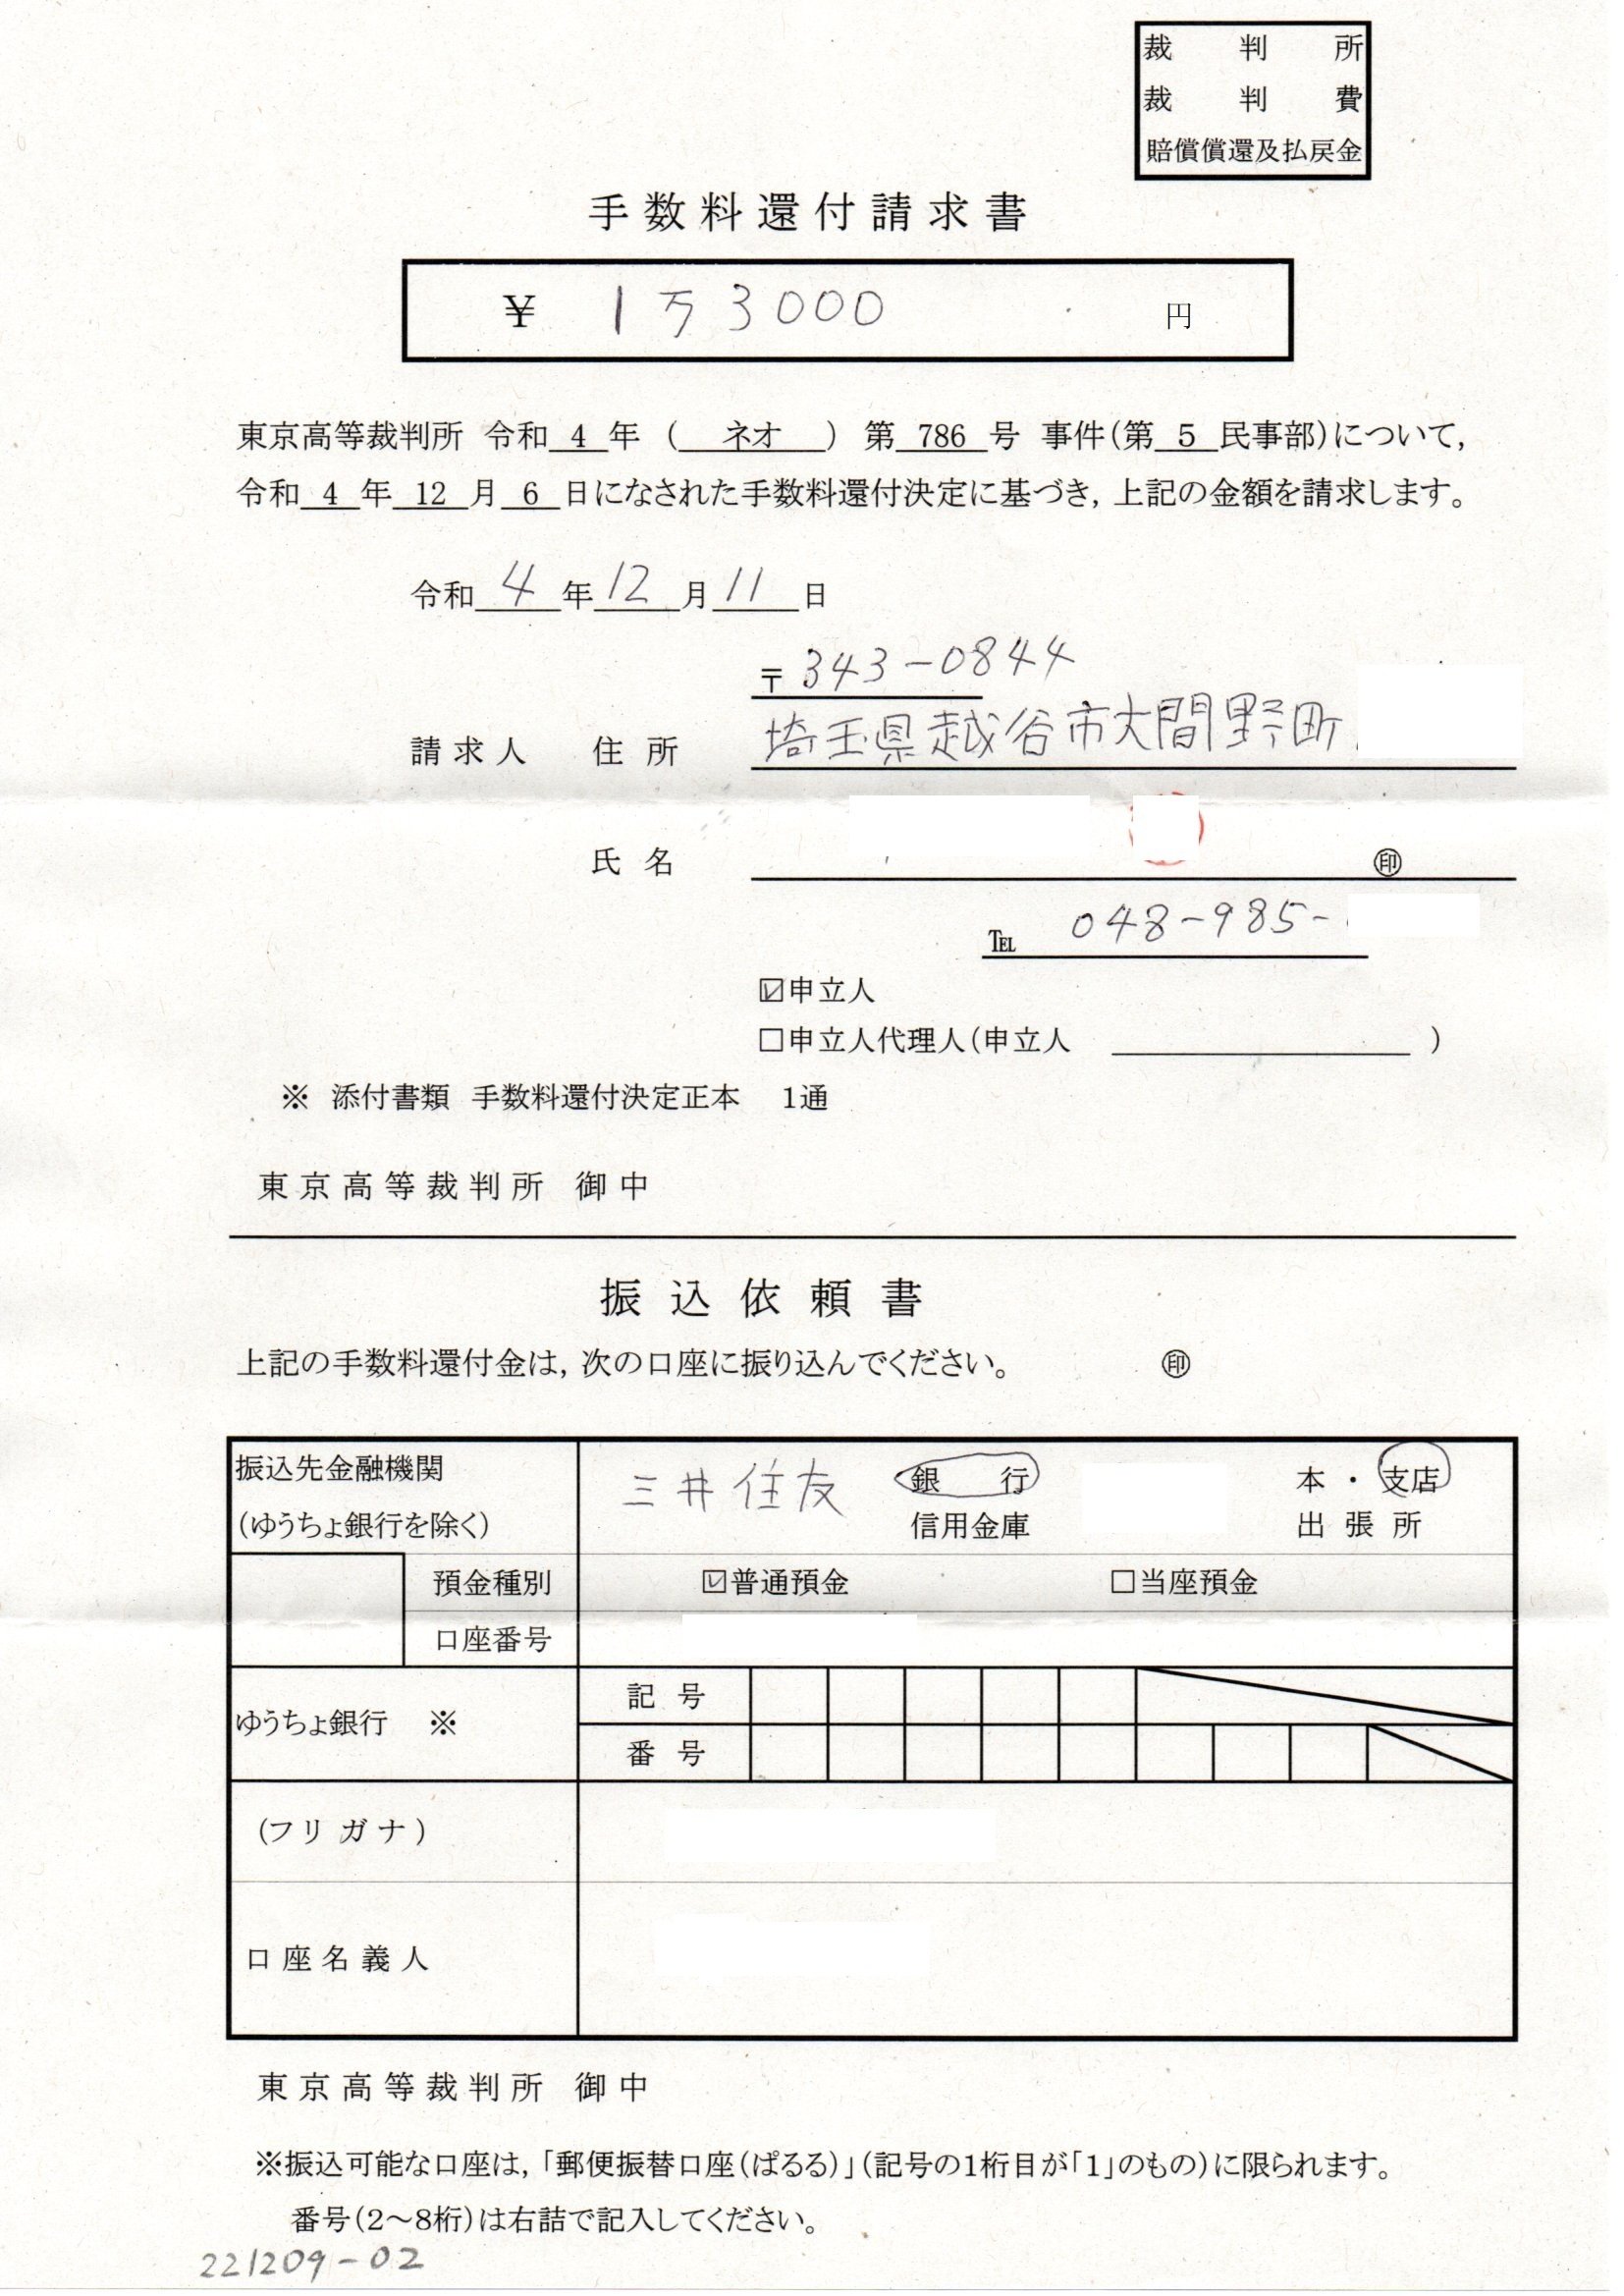 裁判所
裁判費
賠償償還及払戻金
手数料還付請求書
￥ 1万3000 円
東京高等裁判所 令和 4 年 （ ネオ ） 第 786 号 事件（第 5 民事部）について，
令和 4 年 12 月 6 日になされた手数料還付決定に基づき，上記の金額を請求します。
令和 4 年 12 月 11 日
〒343-0844
請求人 住所 埼玉県越谷市大間野町
氏名 ㊞
TEL 048-985-
☑申立人
□申立人代理人（申立人 ）
※ 添付書類 手数料還付決定正本 1通
東京高等裁判所 御中
振込依頼書
上記の手数料還付金は，次の口座に振り込んでください。 ㊞
振込先金融機関 三井住友 銀行 本・支店
（ゆうちょ銀行を除く） 信用金庫 出張所
預金種別 ☑普通預金 □当座預金
口座番号
記号
ゆうちょ銀行 ※
番号
（フリガナ）
口座名義人
東京高等裁判所 御中
※振込可能な口座は，「郵便振替口座（ぱるる）」（記号の1桁目が「1」のもの）に限られます。
番号（2～8桁）は右詰で記入してください。
221209-02